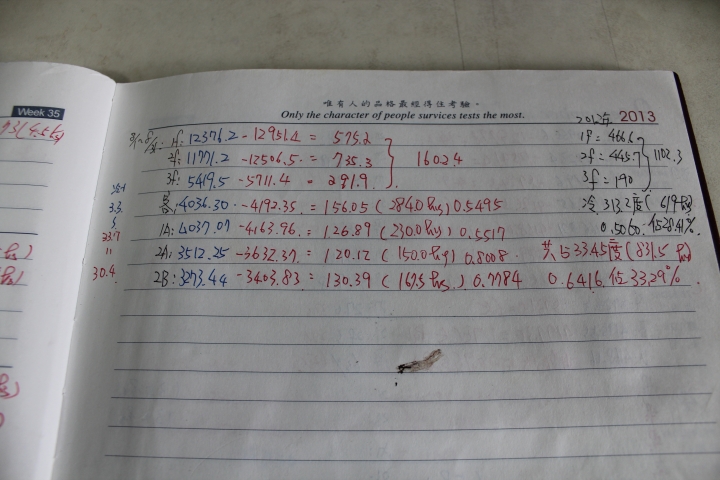 Week 35
唯有人的品格最經得住考驗。
Only the character of people survices tests the most.
2012年 2013
1f: 12376.2 - 12951.4 = 575.2
1f = 466.6
2f: 11771.2 - 12506.5 = 735.3
16024
2f = 445.7
1102.3
3f: 5419.5 - 5711.4 = 291.9
3f = 190
4036.30 - 4192.35 = 156.05 (284.0 hrs) 0.5495
冷 313.2度 (619 hrs)
1A: 4037.07 - 4163.96 = 126.89 (230.0 hrs) 0.5517
0.5060 佔28.41%
2A: 3512.25 - 3632.37 = 120.12 (150.0 hrs) 0.8008
共占 533.45度 (831.5 hrs)
2B: 3273.44 - 3403.83 = 130.39 (167.5 hrs) 0.7784
0.6416 佔33.29%
3.3
23.7
11
30.4